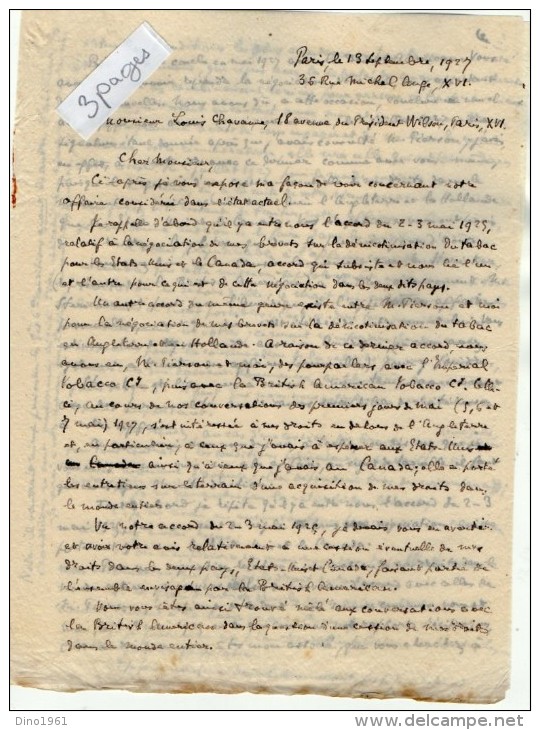 3 pages
Paris, le 13 Septembre, 1927
36 Rue Michel Ange, XVI.
Monsieur Louis Chavanne, 18 avenue du Président Wilson, Paris, XVI.
Cher Monsieur,
Ci après je vous expose ma façon de voir concernant notre
affaire considérée dans l'état actuel.
Je rappelle d'abord qu'il y a entre nous l'accord du 2-3 mai 1925,
relatif à la négociation de mes brevets sur la dénicotinisation du tabac
pour les Etats-Unis et le Canada, accord qui subsiste et nous lie l'un
et l'autre pour ce qui est de cette négociation dans les deux dits pays.
Un autre accord du même genre existe entre M. Pierson et moi
pour la négociation de mes brevets sur la dénicotinisation du tabac
en Angleterre et en Hollande. A raison de ce dernier accord nous
avons eu, M. Pierson et moi, des pourparlers avec l'Imperial
Tobacco Cº, puis avec la British American Tobacco Cº. Celle-
ci, au cours de nos conversations des premiers jours de mai (5, 6 et
7 mai) 1927, s'est intéressée à mes droits en dehors de l'Angleterre
et, en particulier, à ceux que j'avais à espérer aux Etats-Unis
ainsi qu'à ceux que j'avais au Canada; elle a porté
les entretiens sur le terrain d'une acquisition de mes droits dans
le monde entier.
Vu notre accord du 2-3 mai 1925, je devais vous en avertir
et avoir votre avis relativement à une cession éventuelle de mes
droits dans les deux pays, Etats-Unis et Canada, faisant partie de
l'ensemble envisagé par la British American.
Vous vous êtes ainsi trouvé mêlé aux conversations avec
la British American dans la question d'une cession de mes droits
dans le monde entier.
Dino1961
www.delcampe.net